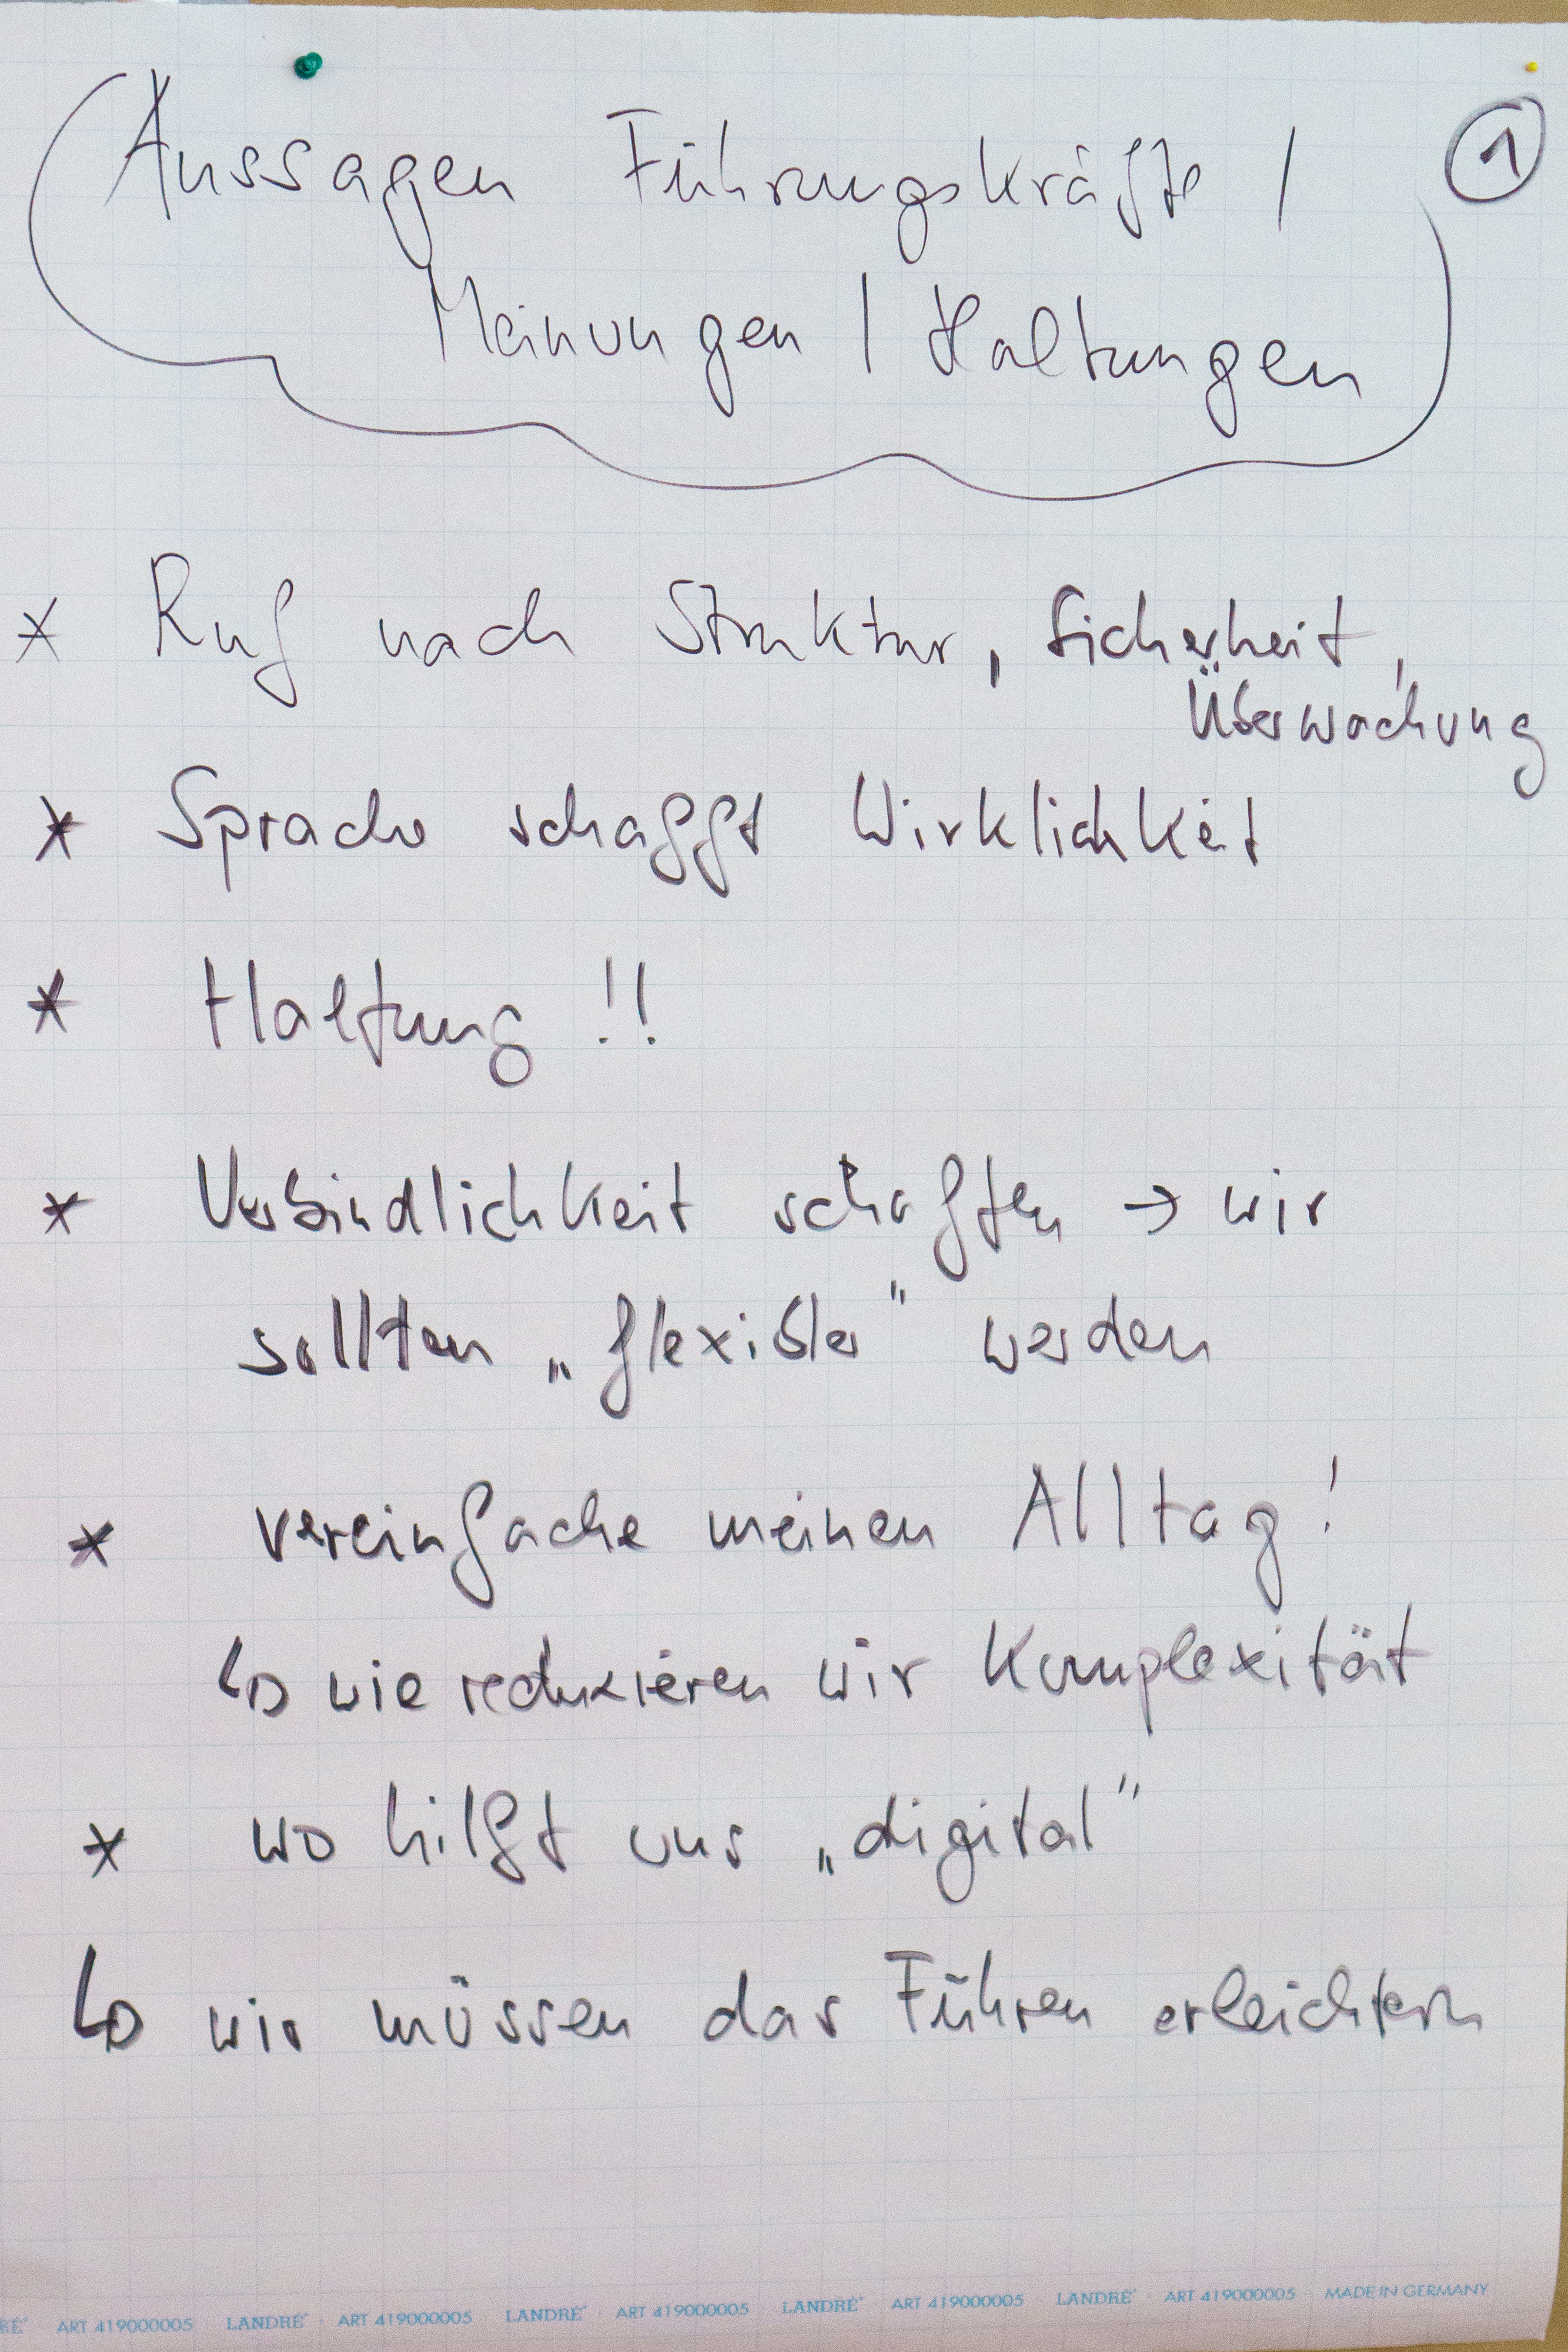 Aussagen Führungskräfte / ①
Meinungen / Haltungen
* Ruf nach Struktur, Sicherheit,
Überwachung
* Sprache schafft Wirklichkeit
* Haltung !!
* Verbindlichkeit schaffen → wir
sollten „flexibler" werden
* vereinfache meinen Alltag!
↳ wie reduzieren wir Komplexität
* wo hilft uns „digital"
↳ wir müssen das Führen erleichtern
RÉ® ART 419000005 LANDRÉ® ART 419000005 LANDRÉ® ART 419000005 LANDRÉ® ART 419000005 LANDRÉ® ART 419000005 MADE IN GERMANY